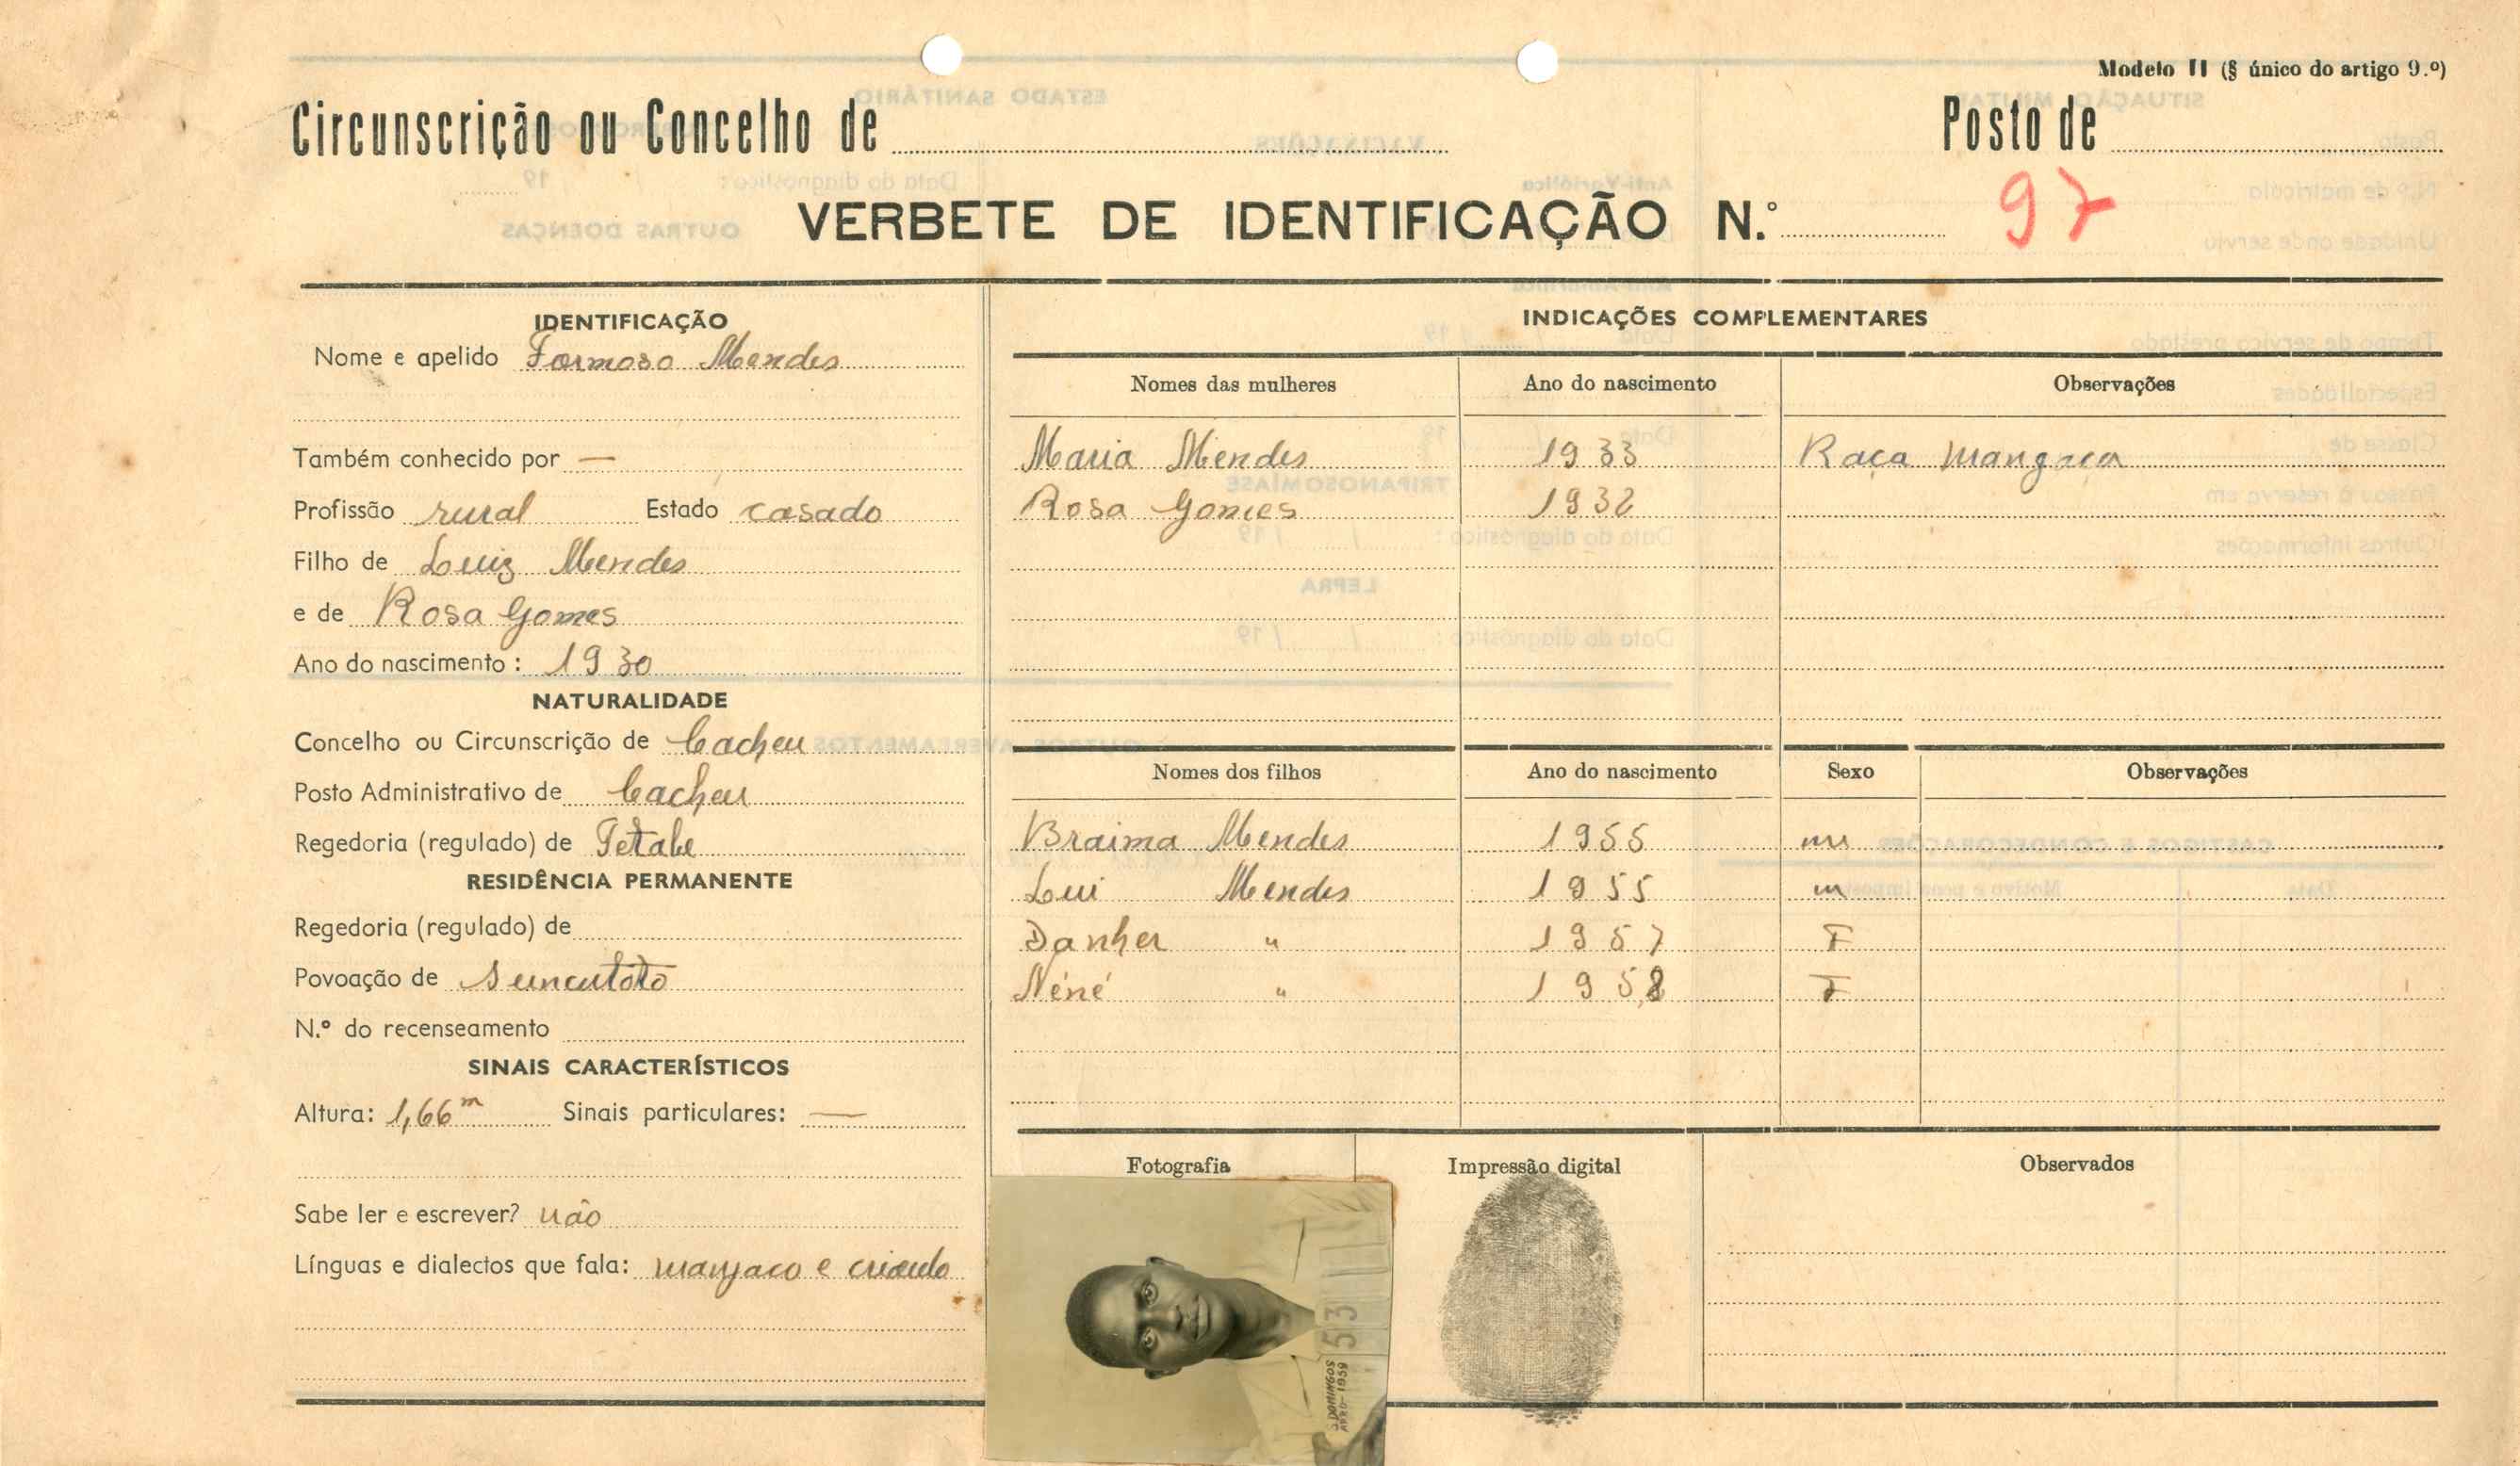 Modelo II (§ único do artigo 9.º)
Circunscrição ou Concelho de
Posto de
VERBETE DE IDENTIFICAÇÃO N.º 97
IDENTIFICAÇÃO
Nome e apelido Formoso Mendes
Também conhecido por —
Profissão rural Estado casado
Filho de Luiz Mendes
e de Rosa Gomes
Ano do nascimento: 1930
NATURALIDADE
Concelho ou Circunscrição de Cacheu
Posto Administrativo de Cacheu
Regedoria (regulado) de
RESIDÊNCIA PERMANENTE
Regedoria (regulado) de
Povoação de
N.º do recenseamento
SINAIS CARACTERÍSTICOS
Altura: 1,66 m Sinais particulares: —
Sabe ler e escrever? não
Línguas e dialectos que fala: manjaco e crioulo
INDICAÇÕES COMPLEMENTARES
Nomes das mulheres Ano do nascimento Observações
Maria Mendes 1933 Raça
Rosa Gomes 1932
Nomes dos filhos Ano do nascimento Sexo Observações
Braima Mendes 1955 m
Lui Mendes 1955 m
Danher " 1957 F
Néné " 1958 F
Fotografia Impressão digital Observados
53
S. DOMINGOS
1959